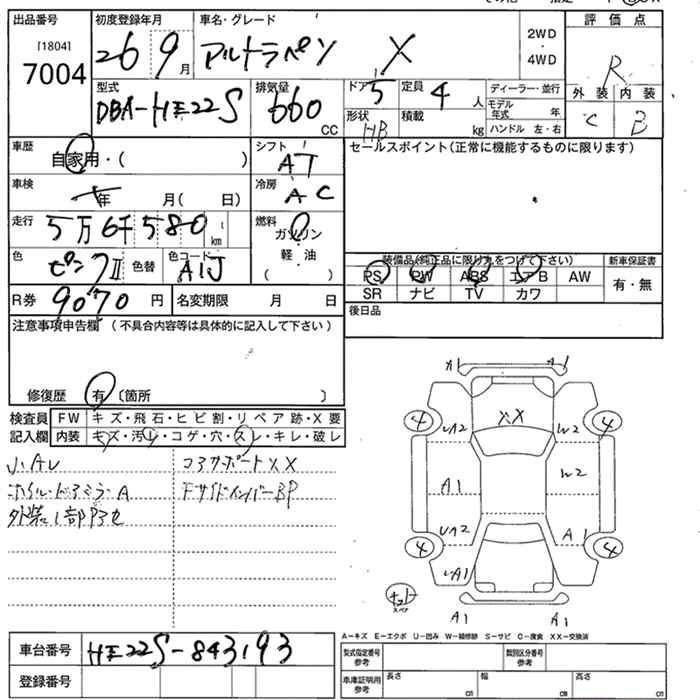 出品番号
[1804]
7004
初度登録年月
26 9月
車名・グレード
アルトラパン X
2WD
・
4WD
評価点
R
外装 内装
C B
型式
DBA-HE22S
排気量
660 CC
ドア 5
定員 4人
形状 HB
積載 kg
ディーラー・並行
モデル年式 年
ハンドル 左・右
車歴
自家用・( )
シフト
AT
セールスポイント(正常に機能するものに限ります)
車検
年 月( 日)
冷房
AC
走行
5万6千580 km
燃料
ガソリン
軽・油
( )
色
ピンクII
色替
色コード
A1J
装備品(純正品に限り丸をつけて下さい)
新車保証書
PS PW ABS エアB AW
有・無
SR ナビ TV カワ
R券 9070円
名変期限 月 日
後日品
注意事項申告欄 (不具合内容等は具体的に記入して下さい)
修復歴 有 〔箇所 〕
検査員記入欄
FW キズ・飛石・ヒビ割・リペア跡・X要
内装 キズ・汚レ・コゲ・穴・スレ・キレ・破レ
小AU
コアサポートXX
ホイル・ドアミラーA
FサイドメンバーBP
A1 A1
XX
4 4
UA2 W2
W2
A1
UA2 A1
4 4
UA1
スペア
A1 A1
A-キズ E-エクボ U-凹み W-補修跡 S-サビ C-腐食 XX-交換済
車台番号 HE22S-843193
登録番号
型式指定番号 参考
類別区分番号 参考
車庫証明用 参考
長さ cm
幅 cm
高さ cm